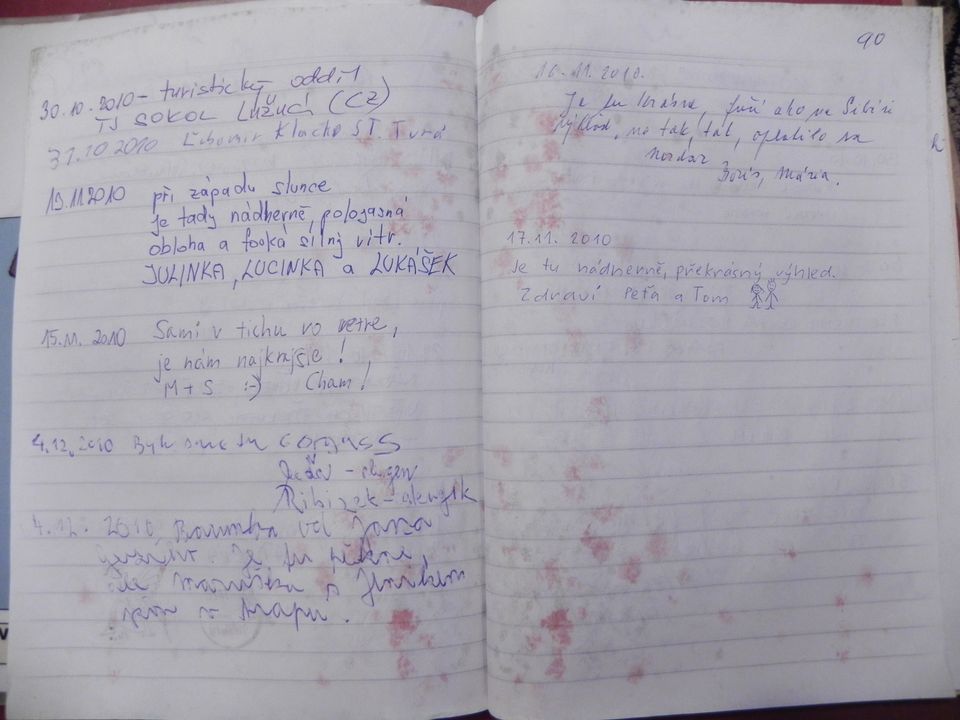 30.10.2010 - turistický oddíl
TJ SOKOL LUŽUCÍ (CZ)
31.10 2010 Ľubomir Klacko ST. Turá
13.11.2010 při západu slunce
je tady nádherně, polojasná
obloha a fouká silný vítr.
JULINKA, LUCINKA a LUKÁŠEK
15.11.2010 Sami v tichu vo vetre,
je nám najkrajšie!
M+S :-) Cham!
4.12.2010 Byli sme tu
Ribizek -
4.12. 2010, od Jana
Je tu pěkně,
v
90
16.11.2010.
Je tu krásne, fučí ako na Sibíri
výhľad, no tak, tak, oplatilo sa
nazdar
Boris, Mária.
17.11. 2010
Je tu nádherně, překrásný výhled.
Zdraví Peťa a Tom